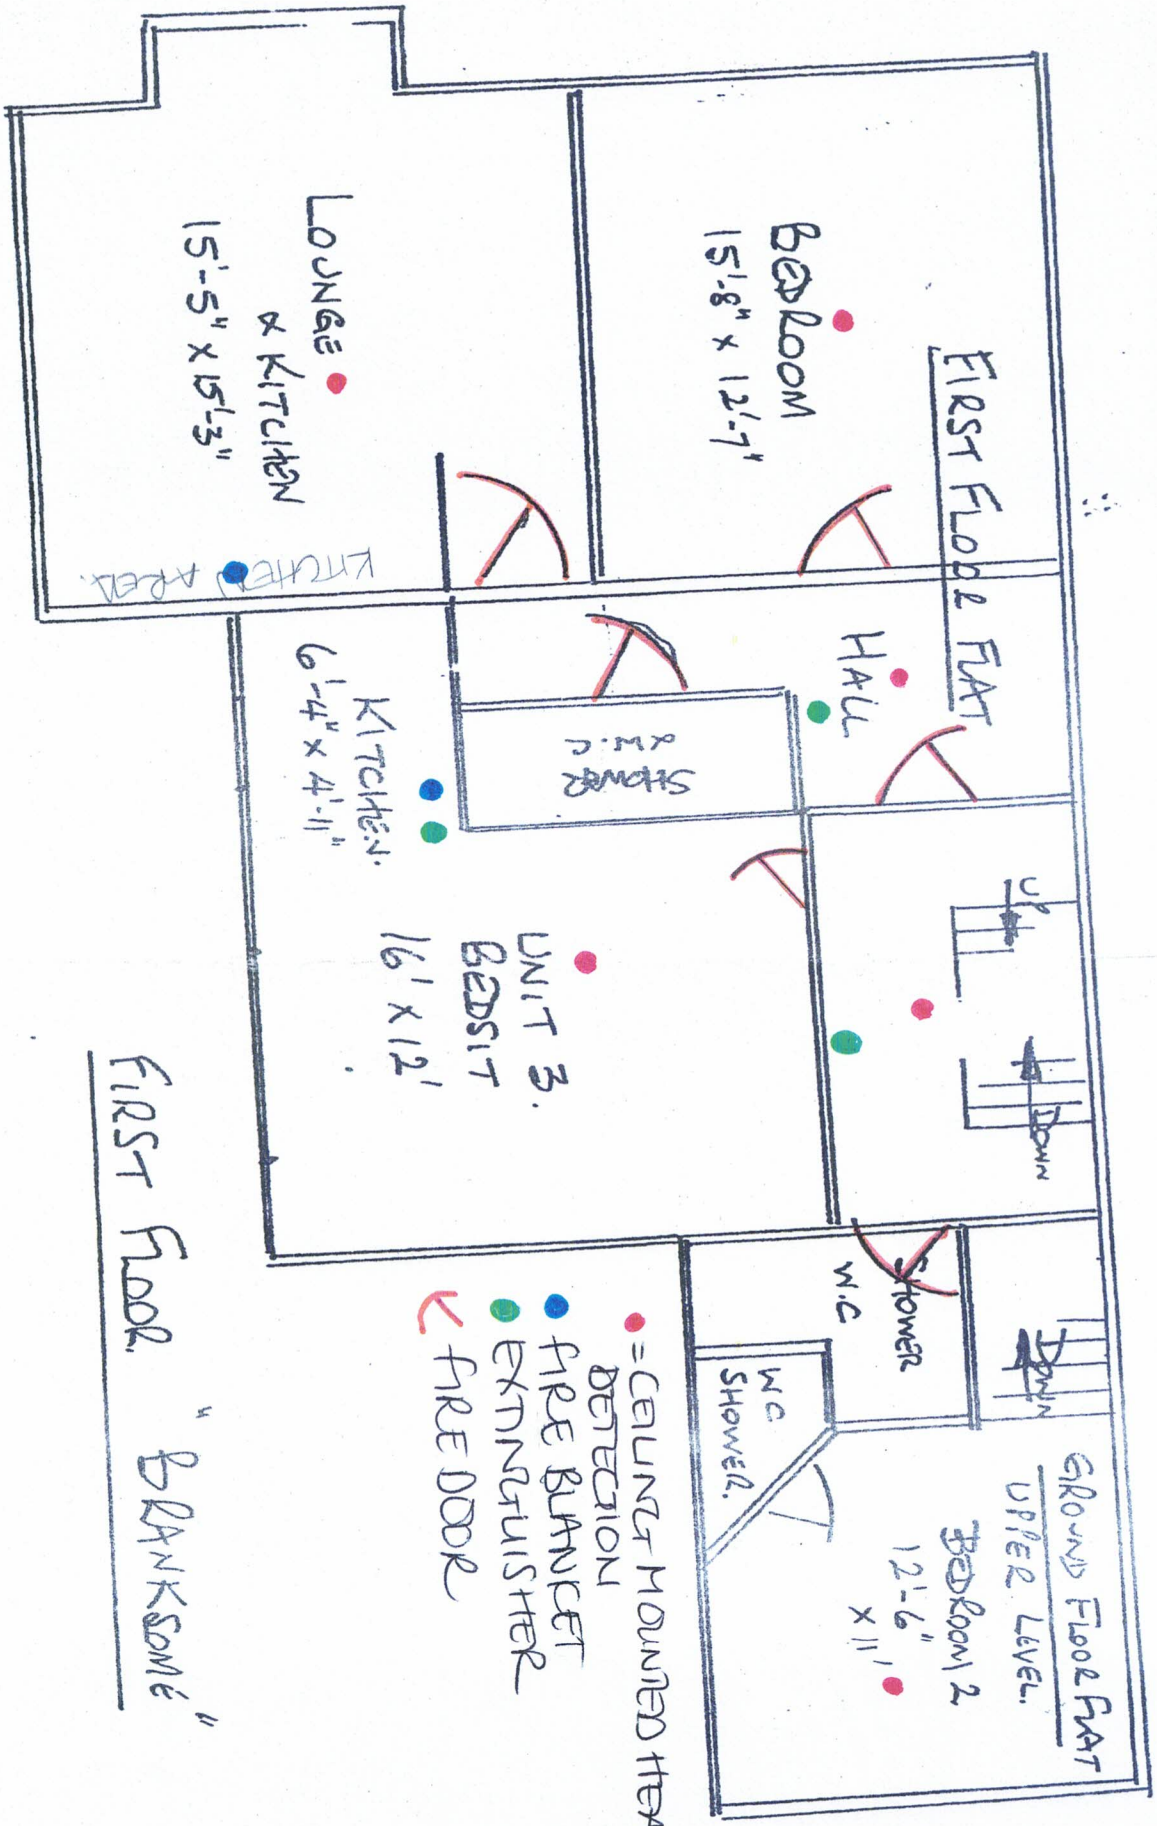 FIRST FLOOR FLAT
BEDROOM
15'-8" x 12'-7"
LOUNGE
& KITCHEN
15'-5" x 15'-3"
KITCHEN AREA.
HALL
SHOWER
& W.C
KITCHEN.
6'-4" x 4'-11"
UNIT 3.
BEDSIT
16' x 12'
UP
DOWN
DOWN
SHOWER
W.C
WC
SHOWER.
GROUND FLOOR FLAT
UPPER LEVEL.
BEDROOM 2
12'-6"
x 11'
= CEILING MOUNTED HEA
DETECTION
FIRE BLANKET
EXTINGUISHER
FIRE DOOR
FIRST FLOOR. "BRANKSOME"